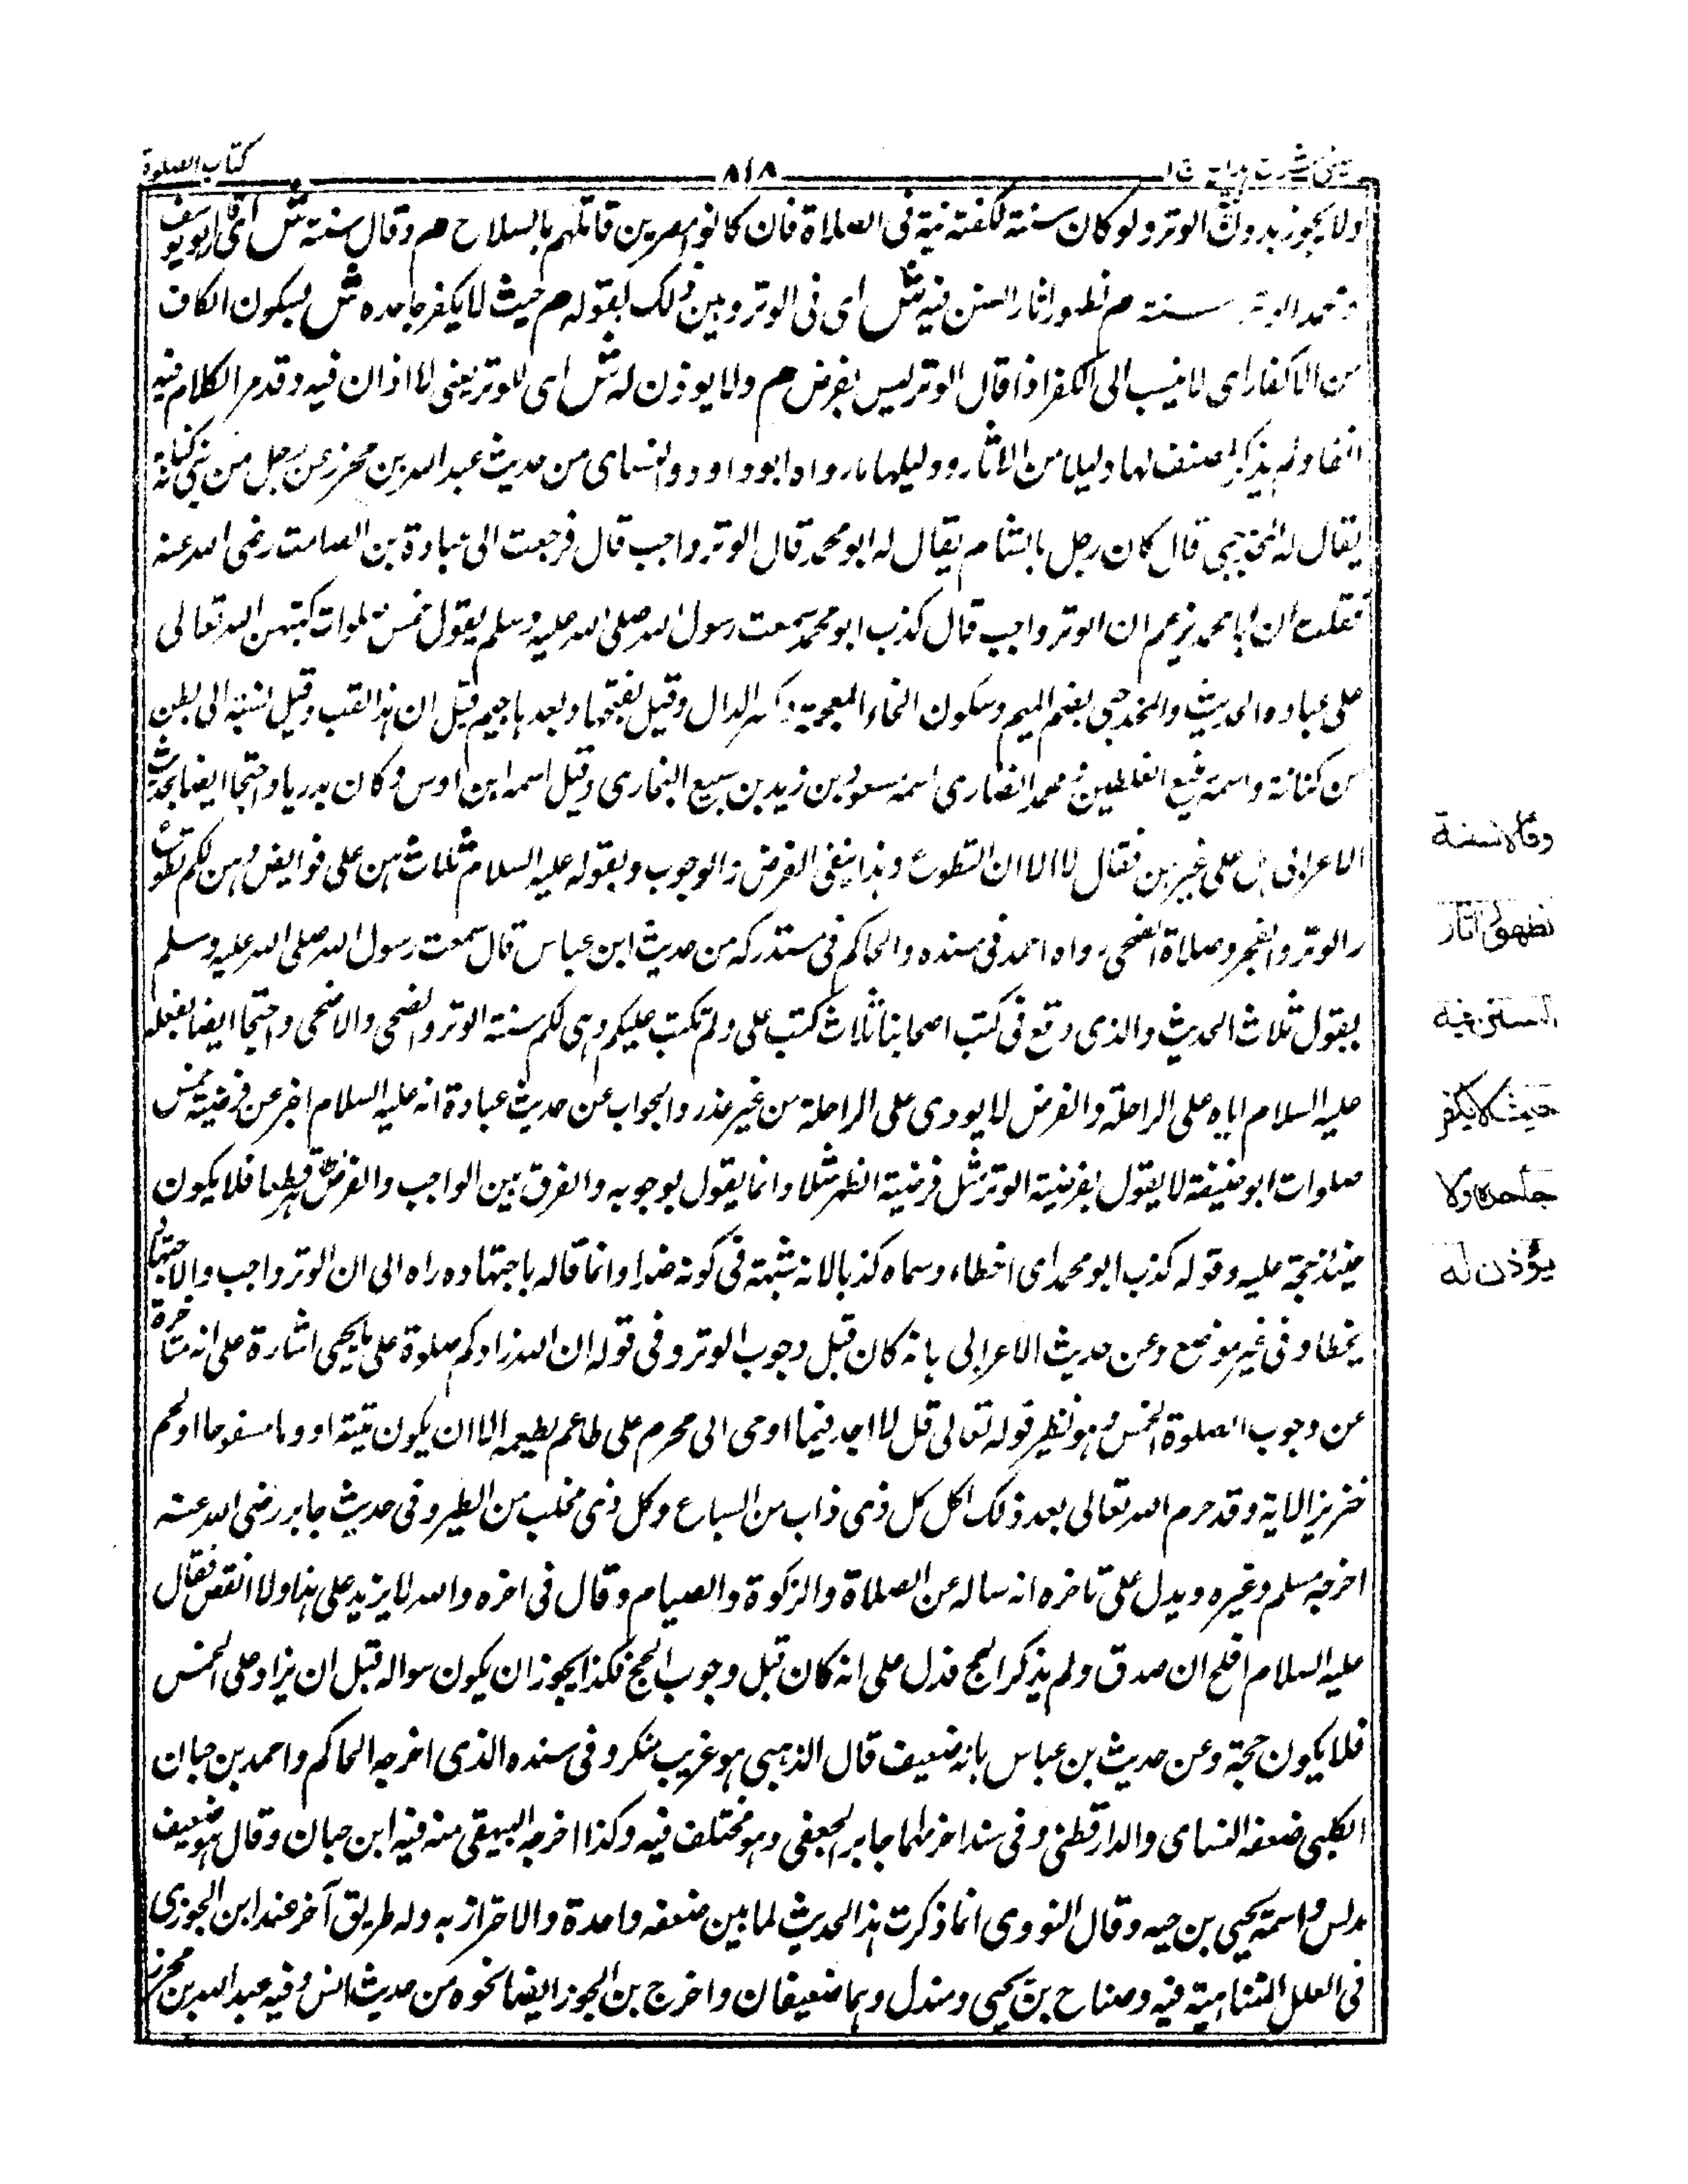 كتاب الصلوة
٨١٨
عينى شرح هداية ج ١
ولا يجوز بدون الوتر ولو كان سنة لكفته نية فى الصلاة فان كانوا مصرين قاتلهم بالسلاح م وقالا سنة ش اى قال ابو يوسف
ومحمد الوتر سنة م لظهور اثار السنن فيه ش اى فى الوتر وبين ذلك بقوله م حيث لا يكفر جاحده ش بسكون الكاف
من الاكفار اى لا ينسب الى الكفر اذا قال الوتر ليس بفرض م ولا يوذن له ش اى للوتر يعنى لا اذان فيه وقد مر الكلام فيه
انفا ولم يذكر المصنف لهما دليلا من الاثار ودليلهما ما رواه ابو داود والنسائى من حديث عبد الله بن محرز عن رجل من بنى كنانة
يقال له المخدجى قال كان رجل بالشام يقال له ابو محمد قال الوتر واجب قال فرجعت الى عبادة بن الصامت رضى الله عنه
فقلت ان ابا محمد يزعم ان الوتر واجب قال كذب ابو محمد سمعت رسول الله صلى الله عليه وسلم يقول خمس صلوات كتبهن الله تعالى
على عباده الحديث والمخدجى بضم الميم وسكون الخاء المعجمة وكسر الدال وقيل بفتحها وبعدها جيم قيل ان هذا لقب وقيل نسبة الى بطن
من كنانة واسمه رفيع الفلسطينى ومحمد انصارى اسمه مسعود بن زيد بن سبيع البخارى وقيل اسمه ابن اوس وكان بدريا واحتجا ايضا بحديث
الاعرابى هل على غيرهن فقال لا الا ان التطوع وهذا ينفى الفرض والوجوب وبقوله عليه السلام ثلاث هن على فرايض وهن لكم تطوع
الوتر والفجر وصلاة الضحى رواه احمد فى مسنده والحاكم فى مستدركه من حديث ابن عباس قال سمعت رسول الله صلى الله عليه وسلم
يقول ثلاث الحديث والذى وقع فى كتب اصحابنا ثلاث كتب على ولم تكتب عليكم وهى لكم سنة الوتر والضحى والاضحى واحتجا ايضا بفعله
عليه السلام اياه على الراحلة والفرض لا يودى على الراحلة من غير عذر والجواب عن حديث عبادة انه عليه السلام اخبر عن فرضية خمس
صلوات ابو حنيفة لا يقول بفرضية الوتر مثل فرضية الظهر مثلا وانما يقول بوجوبه والفرق بين الواجب والفرض ظهر قطعا فلا يكون
حينئذ حجة عليه وقوله كذب ابو محمد اى اخطاء وسماه كذبا لانه شبهه فى كونه ضدا وانما قاله باجتهاده راه الى ان الوتر واجب والاجتهاد
يخطا وفى غير موضع وعن حديث الاعرابى بانه كان قبل وجوب الوتر وفى قوله ان الله زادكم صلوة على ما يجيى اشارة على انه متاخرة
عن وجوب الصلوة الخمس وهو نظير قوله تعالى قل لا اجد فيما اوحى الى محرم على طاعم يطعمه الا ان يكون ميتة او دما مسفوحا او لحم
خنزير الاية وقد حرم الله تعالى بعد ذلك اكل كل ذى ناب من السباع وكل ذى مخلب من الطير وفى حديث جابر رضى الله عنه
اخرجه مسلم وغيره ويدل على تاخره انه ساله عن الصلاة والزكوة والصيام وقال فى اخره والله لا يزيد على هذا ولا انقص فقال
عليه السلام افلح ان صدق ولم يذكر الحج فدل على انه كان قبل وجوب الحج فكذا يجوز ان يكون سواله قبل ان يزاد على الخمس
فلا يكون حجة وعن حديث بن عباس بانه ضعيف قال الذهبى هو غريب منكر وفى سنده الذى اخرجه الحاكم واحمد بن جبان
الكلبى ضعفه النساى والدارقطنى وفى سند اخر لهما جابر الجعفى وهو مختلف فيه وكذا اخرجه البيهقى منه فيه ابن حبان وقال هو ضعيف
مدلس واسمه يحيى بن حيه وقال النووى انما ذكرت هذا الحديث لما بين ضعفه واحدة والاحتراز به وله طريق آخر عند ابن الجوزى
فى العلل المتناهية فيه وضاح بن يحيى ومندل وهما ضعيفان واخرج بن الجوز ايضا نحوه من حديث انس وفيه عبد الله بن محرز
وقالا سنة
لظهور آثار
السنن فيه
حيث لا يكفر
جاحده ولا
يؤذن له